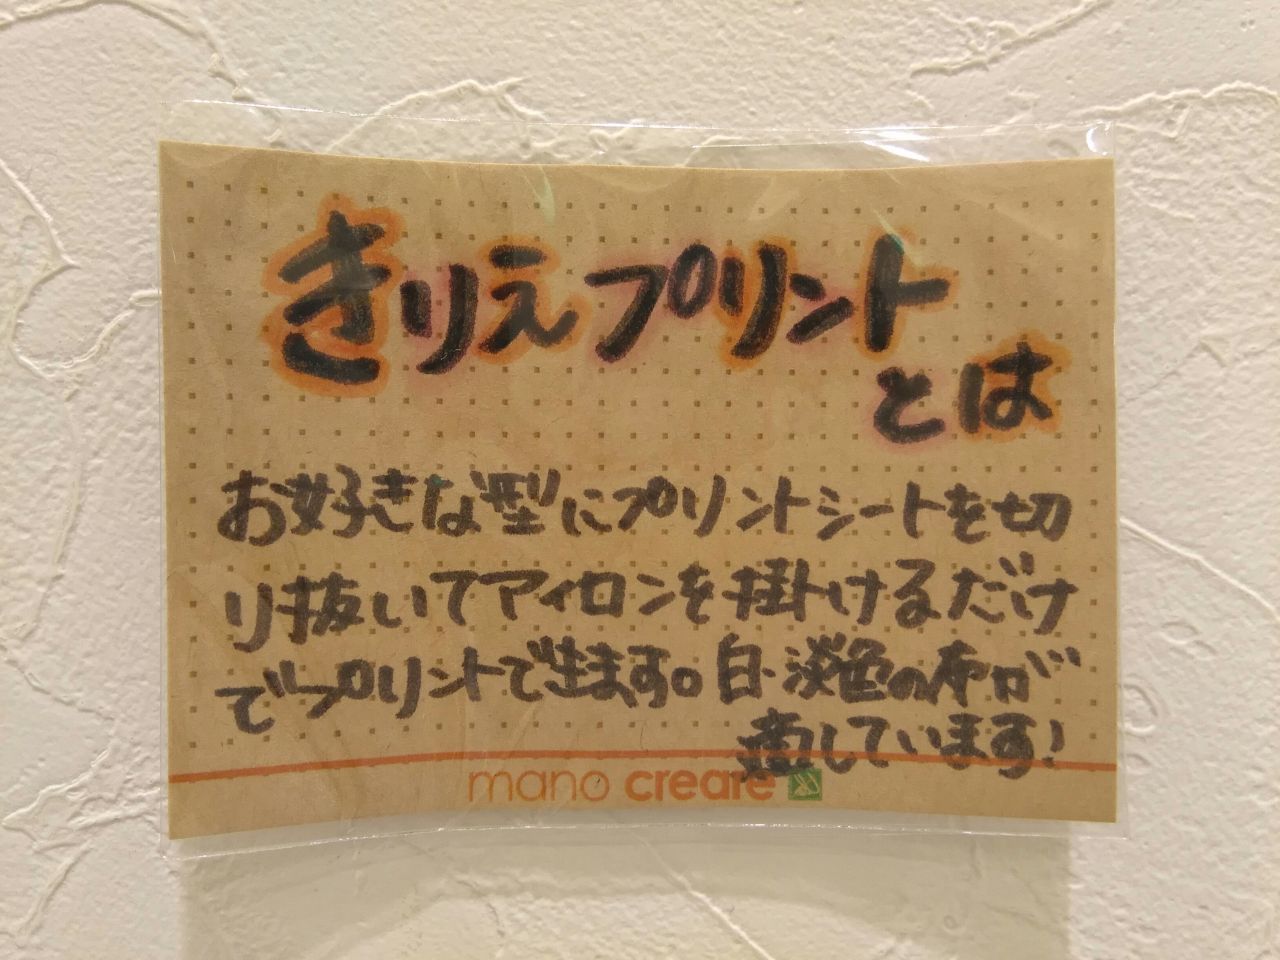 きりえプリント
とは
お好きな型にプリントシートを切
り抜いてアイロンを掛けるだけ
でプリントで生ます。白・淡色の布が
適しています!
mano create